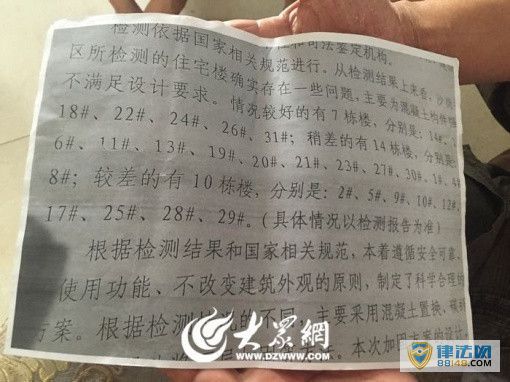 检测依据国家相关规范进行。从检测结果上来看,沙
区所检测的住宅楼确实存在一些问题,主要为混凝土构件
不满足设计要求。情况较好的有7栋楼,分别是:14#、
18#、22#、24#、26#、31#;稍差的有14栋楼,分别是:
6#、11#、13#、19#、20#、21#、23#、27#、30#、1#、4#
8#;较差的有10栋楼,分别是:2#、5#、9#、10#、12#、
17#、25#、28#、29#。(具体情况以检测报告为准)
根据检测结果和国家相关规范,本着遵循安全可靠、
使用功能、不改变建筑外观的原则,制定了科学合理的
方案。根据检测 的不同,主要采用混凝土置换、
本次加固方案的设计
大众网
WWW.DZWWW.COM
律法网
88148.COM